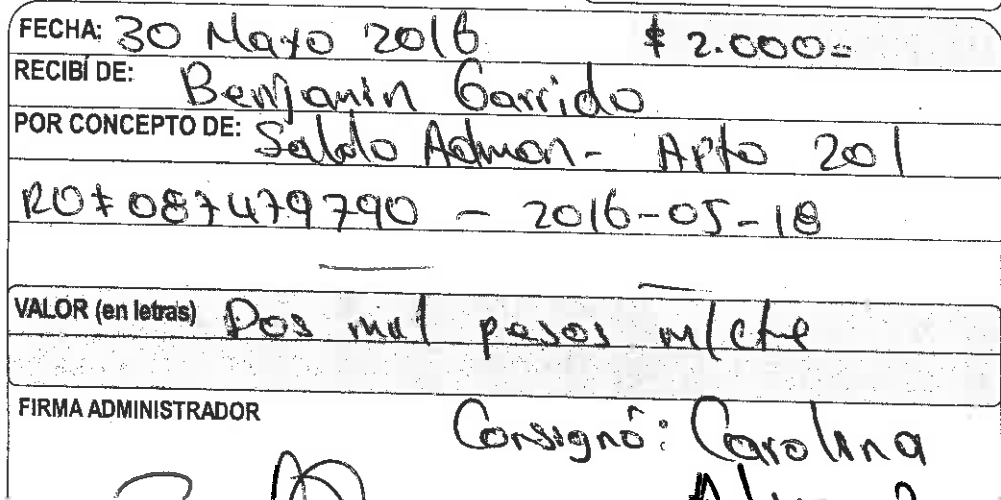 FECHA: 30 Mayo 2016 $ 2.000=
RECIBÍ DE: Benjamin Garrido
POR CONCEPTO DE: Saldo Admon- Apto 201
RO# 087479790 - 2016-05-18
VALOR (en letras) Dos mil pesos m/cte
FIRMA ADMINISTRADOR
Consignó: Carolina